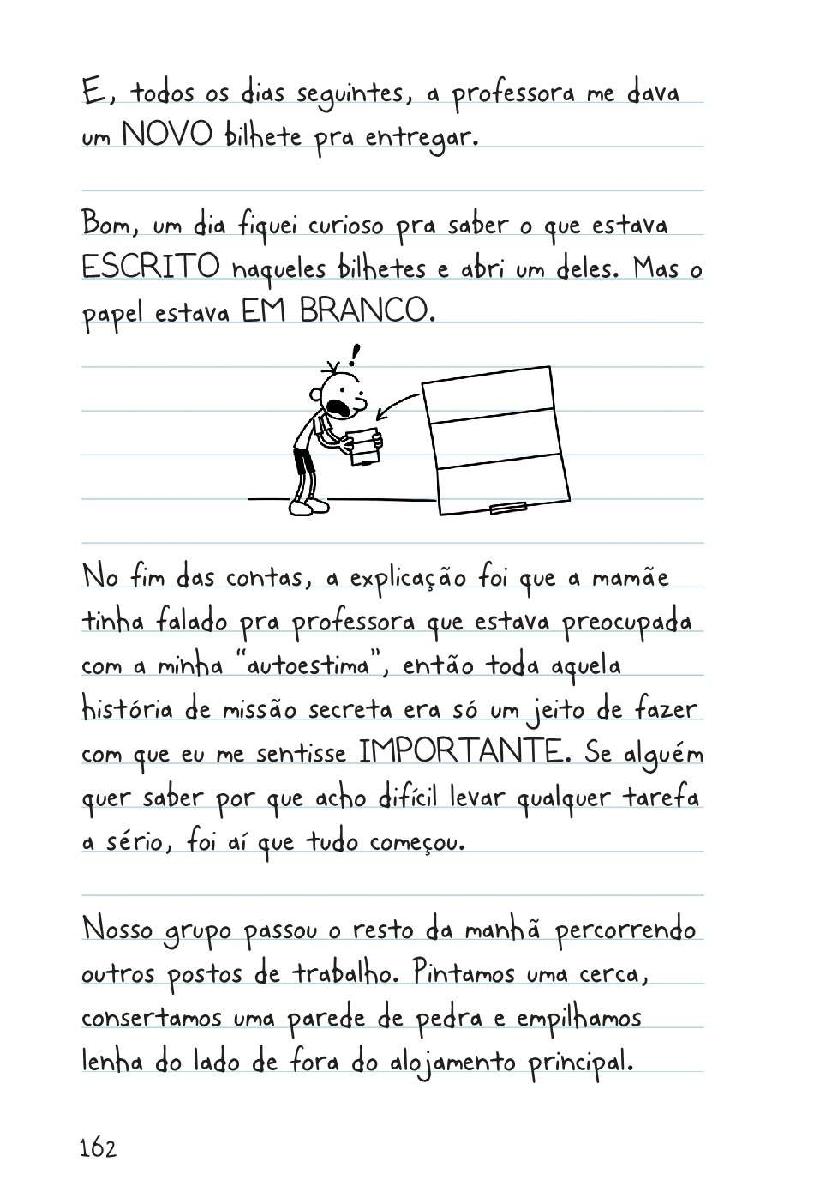 E, todos os dias seguintes, a professora me dava
um NOVO bilhete pra entregar.
Bom, um dia fiquei curioso pra saber o que estava
ESCRITO naqueles bilhetes e abri um deles. Mas o
papel estava EM BRANCO.
!
No fim das contas, a explicação foi que a mamãe
tinha falado pra professora que estava preocupada
com a minha “autoestima”, então toda aquela
história de missão secreta era só um jeito de fazer
com que eu me sentisse IMPORTANTE. Se alguém
quer saber por que acho difícil levar qualquer tarefa
a sério, foi aí que tudo começou.
Nosso grupo passou o resto da manhã percorrendo
outros postos de trabalho. Pintamos uma cerca,
consertamos uma parede de pedra e empilhamos
lenha do lado de fora do alojamento principal.
162